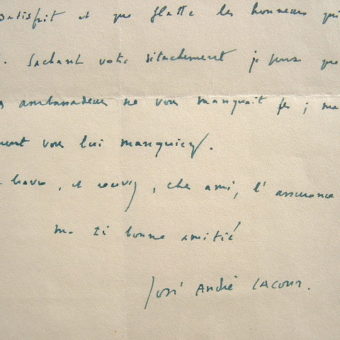 satisfait et que flatte les honneurs qui
. Sachant votre détachement je pense que
ambassadeur ne vous manquait pas ; ma
vous lui manquiez.
bravo, et croyez, cher ami, à l'assurance
ma si bonne amitié
José André Lacour.